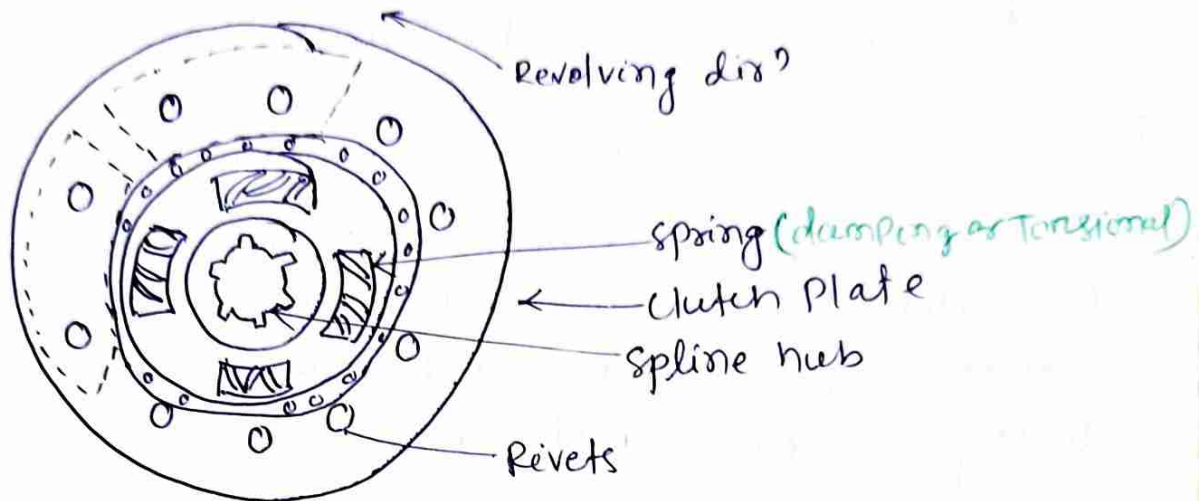 Revolving dirⁿ
spring (damping or Torsional)
Clutch Plate
spline hub
Rivets